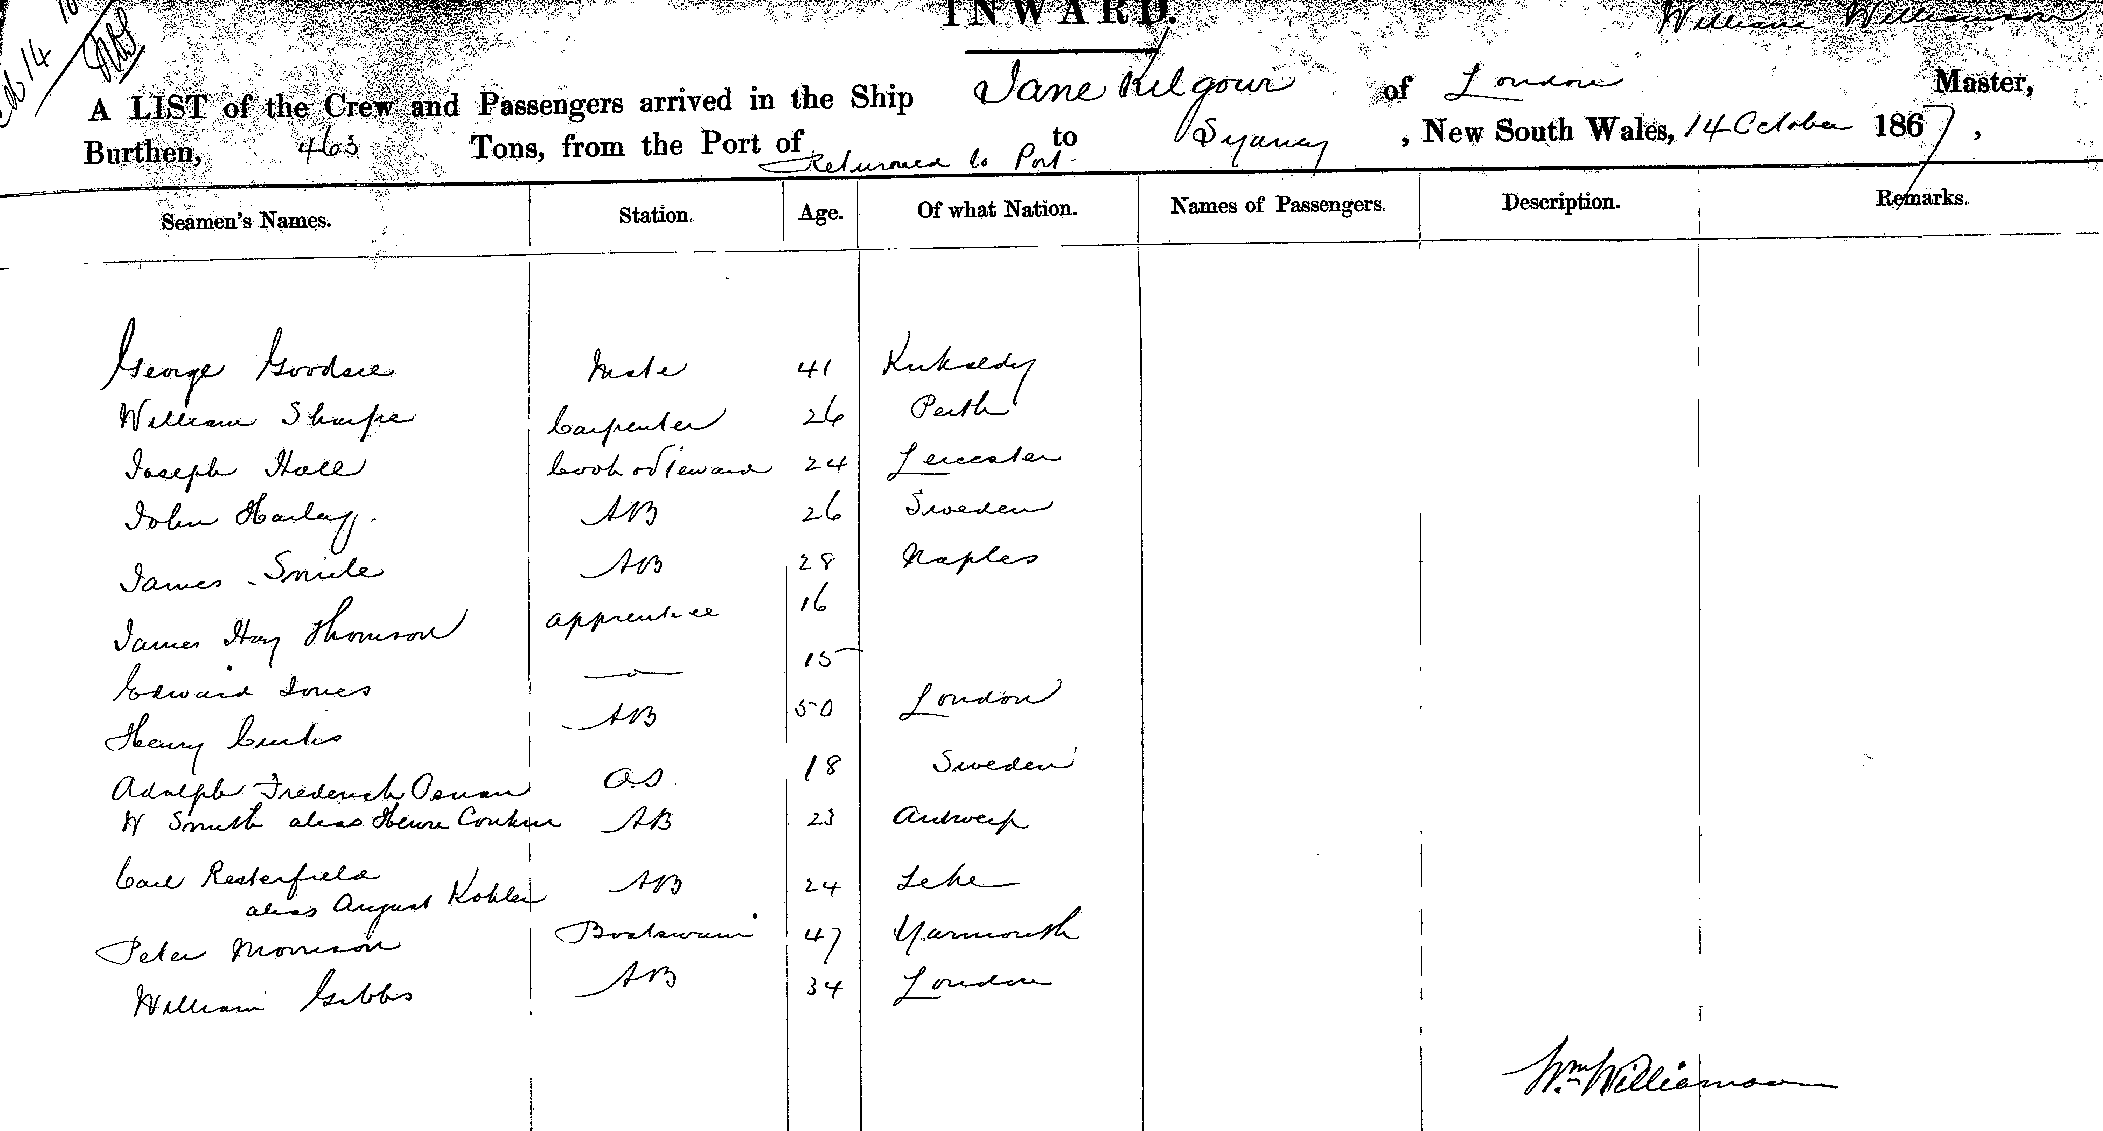 INWARD.
William Williamson
A LIST of the Crew and Passengers arrived in the Ship Jane Kilgour of London Master,
Burthen, 463 Tons, from the Port of Returned to Port to Sydney, New South Wales, 14 October 1867,
Seamen's Names. Station. Age. Of what Nation. Names of Passengers. Description. Remarks.
George Goodsir Mate 41 Kirkaldy
William Sharpe Carpenter 26 Perth
Joseph Hall Cook & Steward 24 Leicester
John AB 26 Sweden
James Smile AB 28 Naples
James Hay Thomson apprentice 16
Edward Jones 15
Henry Curtis AB 50 London
Adolph Frederick OS 18 Sweden
W Smith alias AB 23 Antwerp
Carl Resterfield AB 24 Lehe
alias August Kohler
Peter Morrison Boatswain 47 Yarmouth
William Gibbs AB 34 London
Wm Williamson